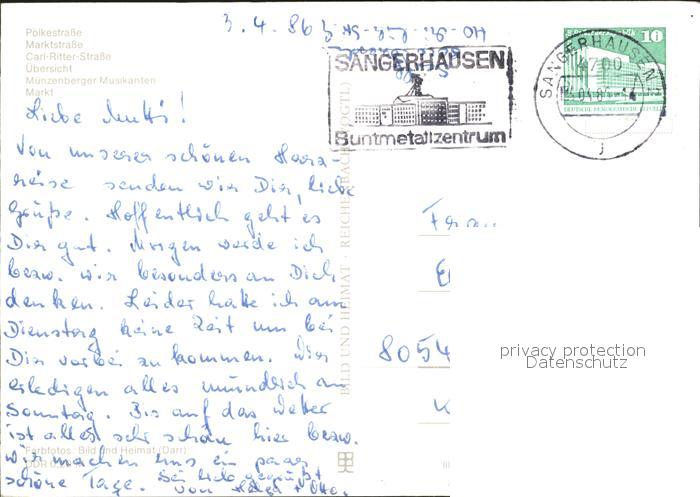 Pölkestraße
Marktstraße
Carl-Ritter-Straße
Übersicht
Münzenberger Musikanten
Markt
3. 4. 86
SANGERHAUSEN
Buntmetallzentrum
SANGERHAUSEN
4700
j
10
DEUTSCHE DEMOKRATISCHE REPUBLIK
Liebe Mutti!
Von unserer schönen Harz-
reise senden wir Dir, liebe
Grüße. Hoffentlich geht es
Dir gut. Morgen werde ich
bzw. wir besonders an Dich
denken. Leider hatte ich am
Dienstag keine Zeit um bei
Dir vorbei zu kommen. Wir
erledigen alles mündlich am
Sonntag. Bis auf das Wetter
ist alles sehr schön hier bzw.
wir machen uns ein paar
schöne Tage. Sei lieb gegrüßt
von
Farbfotos: Bild und Heimat (Darr)
BILD UND HEIMAT · REICHENBACH (VOGTL)
Frau
8054
privacy protection
Datenschutz